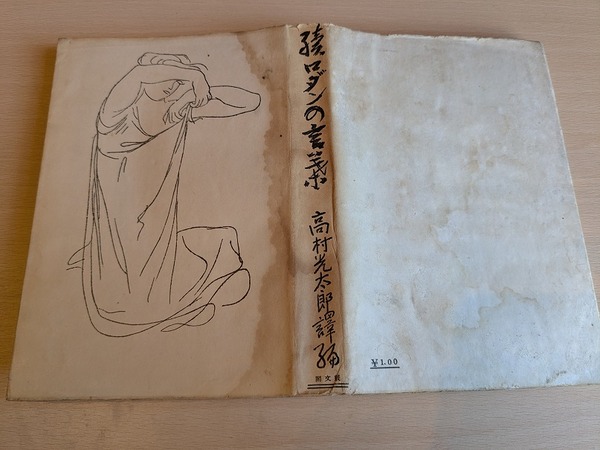 續ロダンの言葉
高村光太郎譯編
叢文閣
¥1.00